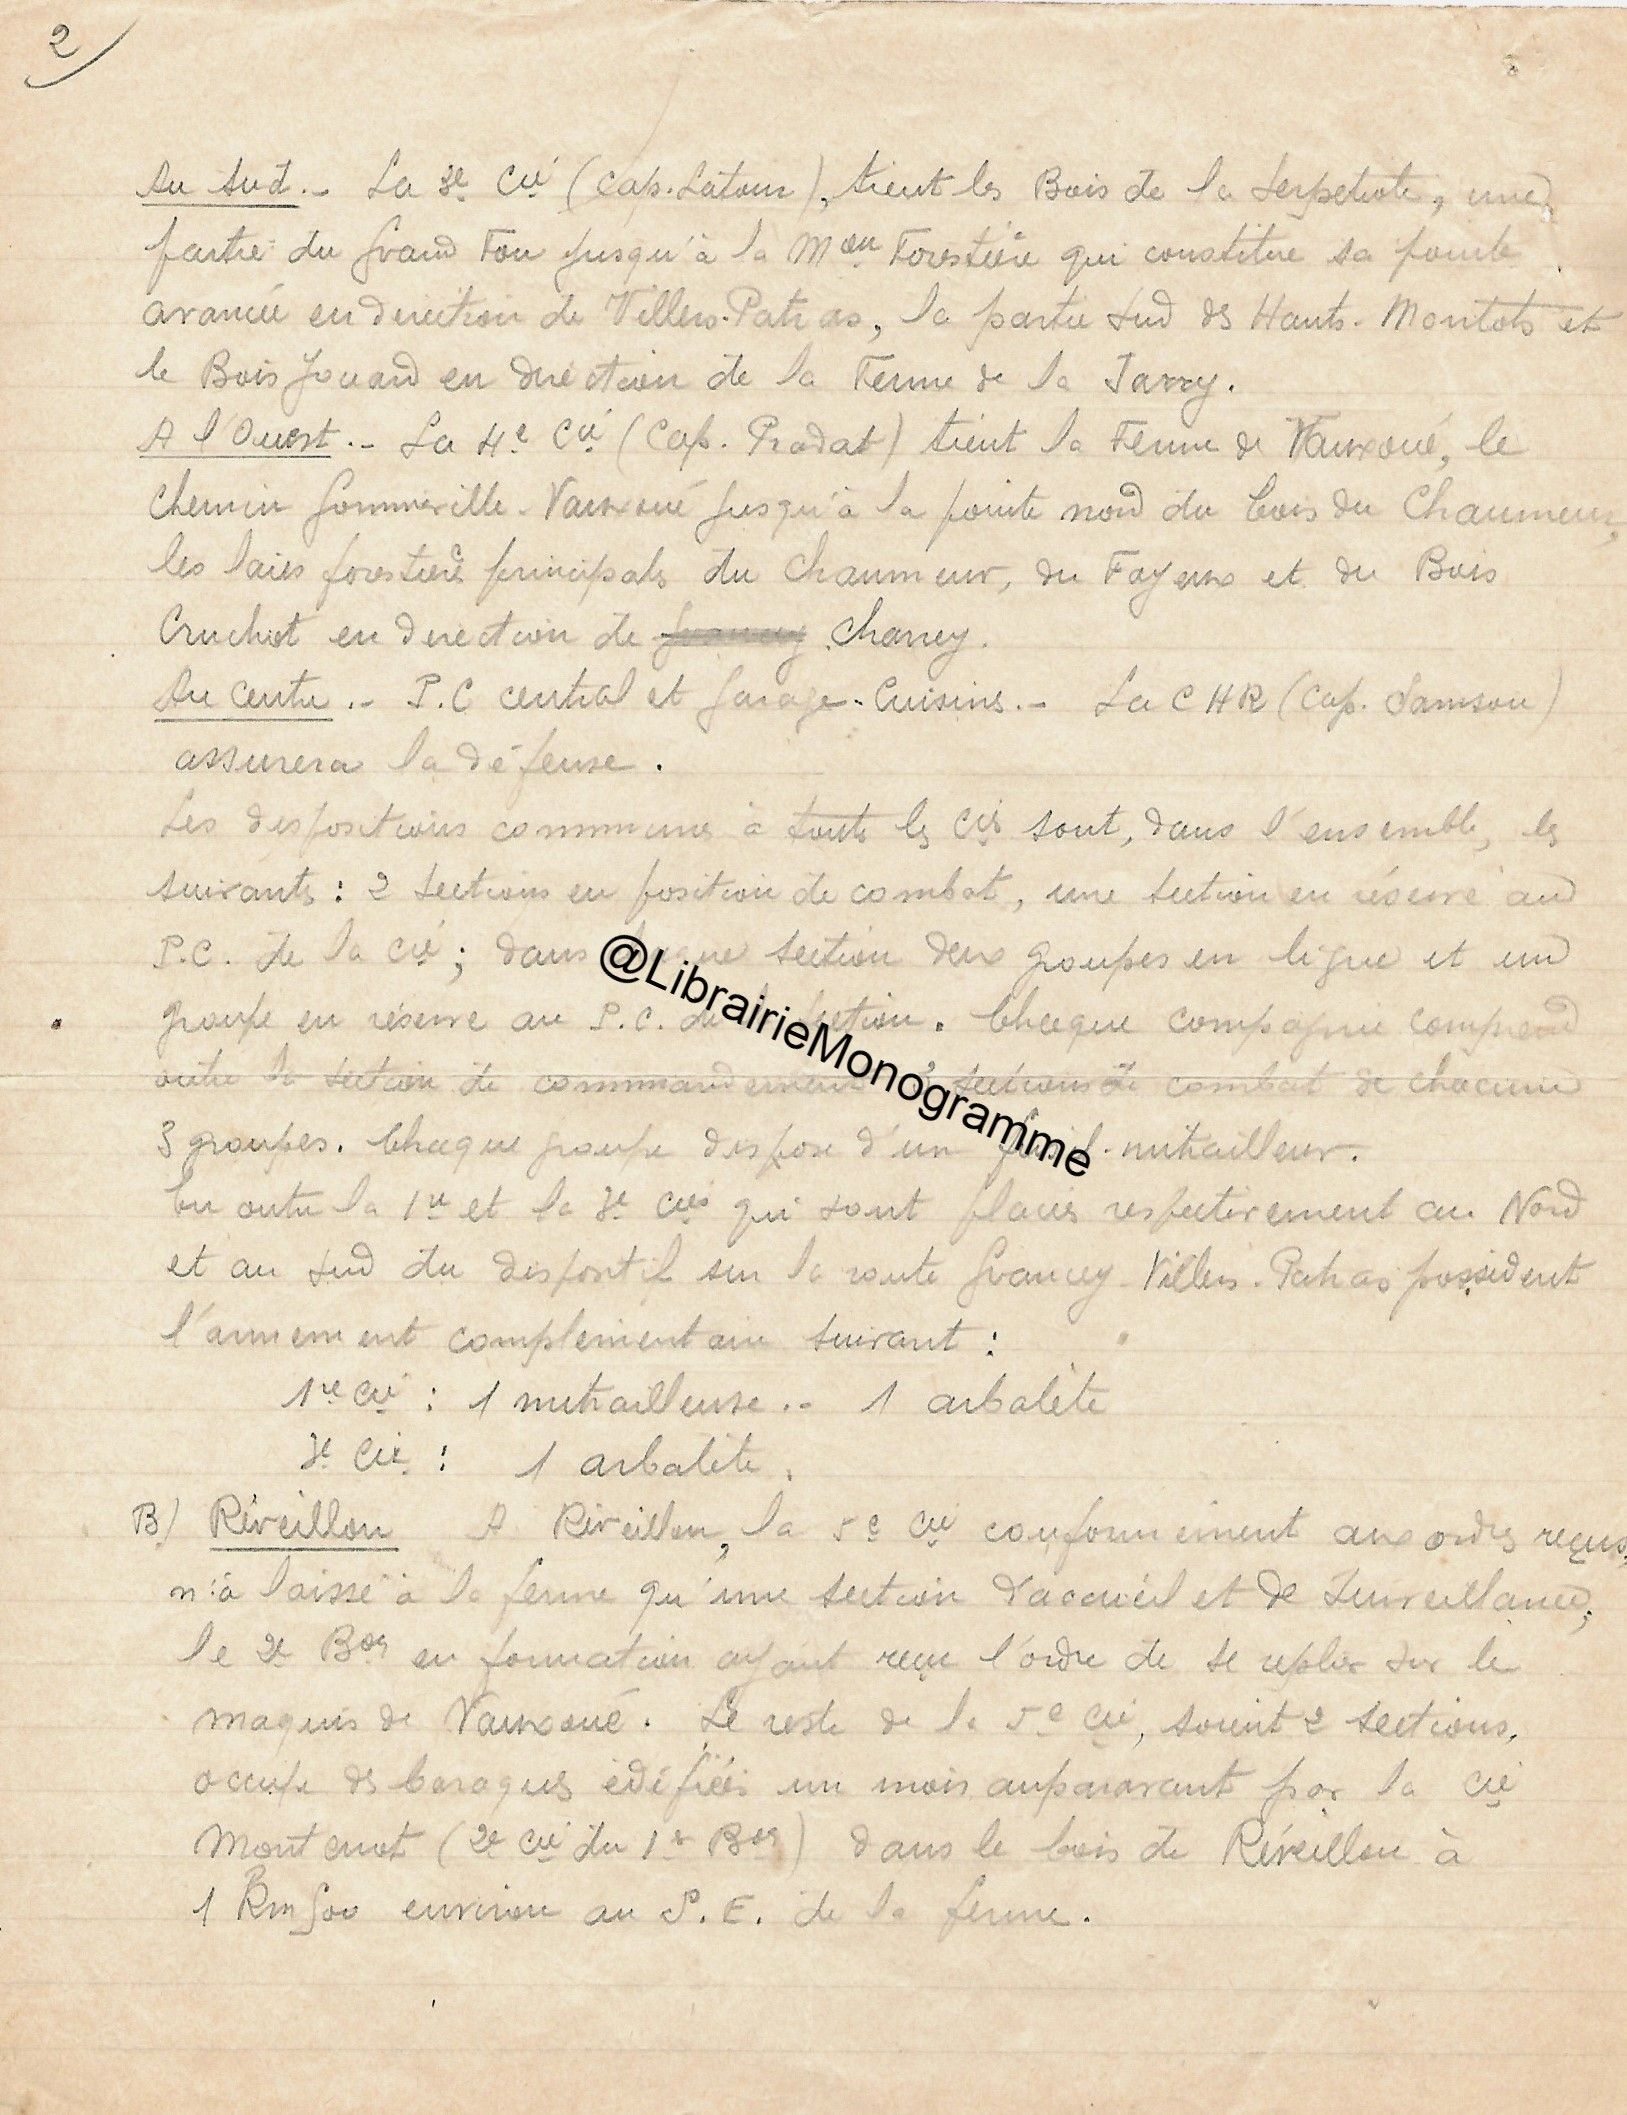 2
Au Sud.- La 3e Cie (Cap. Latour), tient les Bois de la Serpetiote, une
partie du Grand Fou jusqu'à la Mon Forestière qui constitue sa pointe
avancée en direction de Villers-Patras, la partie Sud des Hauts-Montots et
le Bois Jouard en direction de la Ferme de la Jarry.
A l'Ouest.- La 4e Cie (Cap. Pradat) tient la Ferme de Vauxoué, le
chemin Gommeville-Vauxoué jusqu'à la pointe nord du bois du Chaumeur,
les laies forestières principales du Chaumeur, du Fayeux et du Bois
Cruchot en direction de Charrey.
Au Centre.- P.C central et Garage-Cuisines.- La CHR (Cap. Samson)
assurera la défense.
Les dispositions communes à toutes les Cies sont, dans l'ensemble, les
suivantes : 2 sections en position de combat, une section en réserve au
P.C. de la Cie ; dans section deux groupes en ligne et un
groupe en réserve au P.C. de section. Chaque compagnie comprend
outre la section de commandement 3 sections de combat de chacune
3 groupes. Chaque groupe dispose d'un fusil-mitrailleur.
En outre la 1re et la 3e Cies qui sont placées respectivement au Nord
et au Sud du dispositif sur la route Grancey-Villers-Patras possèdent
l'armement complémentaire suivant :
1re Cie : 1 mitrailleuse.- 1 arbalète
3e Cie : 1 arbalète.
B) Réveillon A Réveillon, la 5e Cie conformément aux ordres reçus,
n'a laissé à la ferme qu'une section d'accueil et de surveillance,
le 2e Bon en formation ayant reçu l'ordre de se replier sur le
maquis de Vauxoué. Le reste de la 5e Cie, soient 2 sections,
occupe des baraques édifiées un mois auparavant par la Cie
Montcenot (2e Cie du 1er Bon) dans le bois de Réveillon à
1 Km 500 environ au S.E. de la ferme.
@LibrairieMonogramme